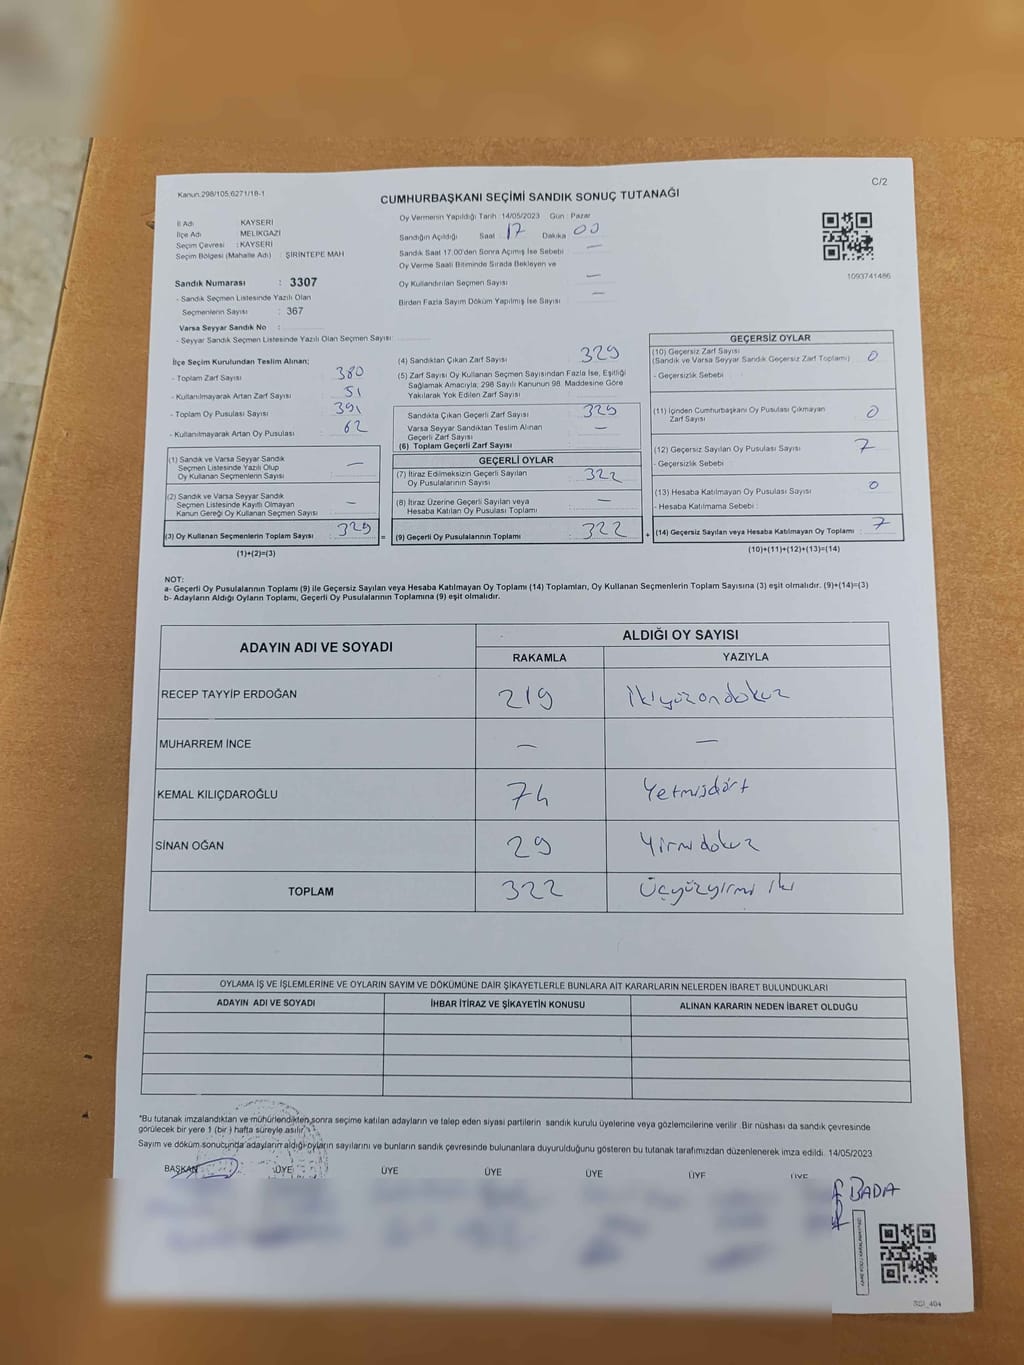 Kanun.298/105,6271/18-1
C/2
CUMHURBAŞKANI SEÇİMİ SANDIK SONUÇ TUTANAĞI
İl Adı : KAYSERİ
İlçe Adı : MELİKGAZİ
Seçim Çevresi : KAYSERİ
Seçim Bölgesi (Mahalle Adı) : ŞİRİNTEPE MAH
Oy Vermenin Yapıldığı Tarih :14/05/2023 Gün : Pazar
Sandığın Açıldığı Saat : 17 Dakika : 00
Sandık Saat 17:00'den Sonra Açılmış İse Sebebi : —
Oy Verme Saati Bitiminde Sırada Bekleyen ve
Oy Kullandırılan Seçmen Sayısı : —
Birden Fazla Sayım Döküm Yapılmış İse Sayısı : —
1093741486
Sandık Numarası : 3307
- Sandık Seçmen Listesinde Yazılı Olan
Seçmenlerin Sayısı : 367
Varsa Seyyar Sandık No :
- Seyyar Sandık Seçmen Listesinde Yazılı Olan Seçmen Sayısı:
İlçe Seçim Kurulundan Teslim Alınan;
- Toplam Zarf Sayısı : 380
- Kullanılmayarak Artan Zarf Sayısı : 51
- Toplam Oy Pusulası Sayısı : 391
- Kullanılmayarak Artan Oy Pusulası : 62
(1) Sandık ve Varsa Seyyar Sandık
Seçmen Listesinde Yazılı Olup
Oy Kullanan Seçmenlerin Sayısı : —
(2) Sandık ve Varsa Seyyar Sandık
Seçmen Listesinde Kayıtlı Olmayan
Kanun Gereği Oy Kullanan Seçmen Sayısı : —
(3) Oy Kullanan Seçmenlerin Toplam Sayısı : 329 =
(1)+(2)=(3)
(4) Sandıktan Çıkan Zarf Sayısı : 329
(5) Zarf Sayısı Oy Kullanan Seçmen Sayısından Fazla İse, Eşitliği
Sağlamak Amacıyla; 298 Sayılı Kanunun 98. Maddesine Göre
Yakılarak Yok Edilen Zarf Sayısı :
Sandıkta Çıkan Geçerli Zarf Sayısı : 329
Varsa Seyyar Sandıktan Teslim Alınan
Geçerli Zarf Sayısı : —
(6) Toplam Geçerli Zarf Sayısı :
GEÇERLİ OYLAR
(7) İtiraz Edilmeksizin Geçerli Sayılan
Oy Pusulalarının Sayısı : 322
(8) İtiraz Üzerine Geçerli Sayılan veya
Hesaba Katılan Oy Pusulası Toplamı : —
(9) Geçerli Oy Pusulalarının Toplamı : 322 +
GEÇERSİZ OYLAR
(10) Geçersiz Zarf Sayısı
(Sandık ve Varsa Seyyar Sandık Geçersiz Zarf Toplamı) : 0
- Geçersizlik Sebebi :
(11) İçinden Cumhurbaşkanı Oy Pusulası Çıkmayan
Zarf Sayısı : 0
(12) Geçersiz Sayılan Oy Pusulası Sayısı : 7
- Geçersizlik Sebebi :
(13) Hesaba Katılmayan Oy Pusulası Sayısı : 0
- Hesaba Katılmama Sebebi :
(14) Geçersiz Sayılan veya Hesaba Katılmayan Oy Toplamı : 7
(10)+(11)+(12)+(13)=(14)
NOT:
a- Geçerli Oy Pusulalarının Toplamı (9) ile Geçersiz Sayılan veya Hesaba Katılmayan Oy Toplamı (14) Toplamları, Oy Kullanan Seçmenlerin Toplam Sayısına (3) eşit olmalıdır. (9)+(14)=(3)
b- Adayların Aldığı Oyların Toplamı, Geçerli Oy Pusulalarının Toplamına (9) eşit olmalıdır.
ADAYIN ADI VE SOYADI
ALDIĞI OY SAYISI
RAKAMLA YAZIYLA
RECEP TAYYİP ERDOĞAN 219 İkiyüzondokuz
MUHARREM İNCE — —
KEMAL KILIÇDAROĞLU 74 Yetmişdört
SİNAN OĞAN 29 Yirmidokuz
TOPLAM 322 Üçyüzyirmi iki
OYLAMA İŞ VE İŞLEMLERİNE VE OYLARIN SAYIM VE DÖKÜMÜNE DAİR ŞİKAYETLERLE BUNLARA AİT KARARLARIN NELERDEN İBARET BULUNDUKLARI
ADAYIN ADI VE SOYADI İHBAR İTİRAZ VE ŞİKAYETİN KONUSU ALINAN KARARIN NEDEN İBARET OLDUĞU
*Bu tutanak imzalandıktan ve mühürlendikten sonra seçime katılan adayların ve talep eden siyasi partilerin sandık kurulu üyelerine veya gözlemcilerine verilir. Bir nüshası da sandık çevresinde
görülecek bir yere 1 (bir ) hafta süreyle asılır.
Sayım ve döküm sonucunda adayların aldığı oyların sayılarını ve bunların sandık çevresinde bulunanlara duyurulduğunu gösteren bu tutanak tarafımızdan düzenlenerek imza edildi. 14/05/2023
BAŞKAN ÜYE ÜYE ÜYE ÜYE ÜYE ÜYE
BADA